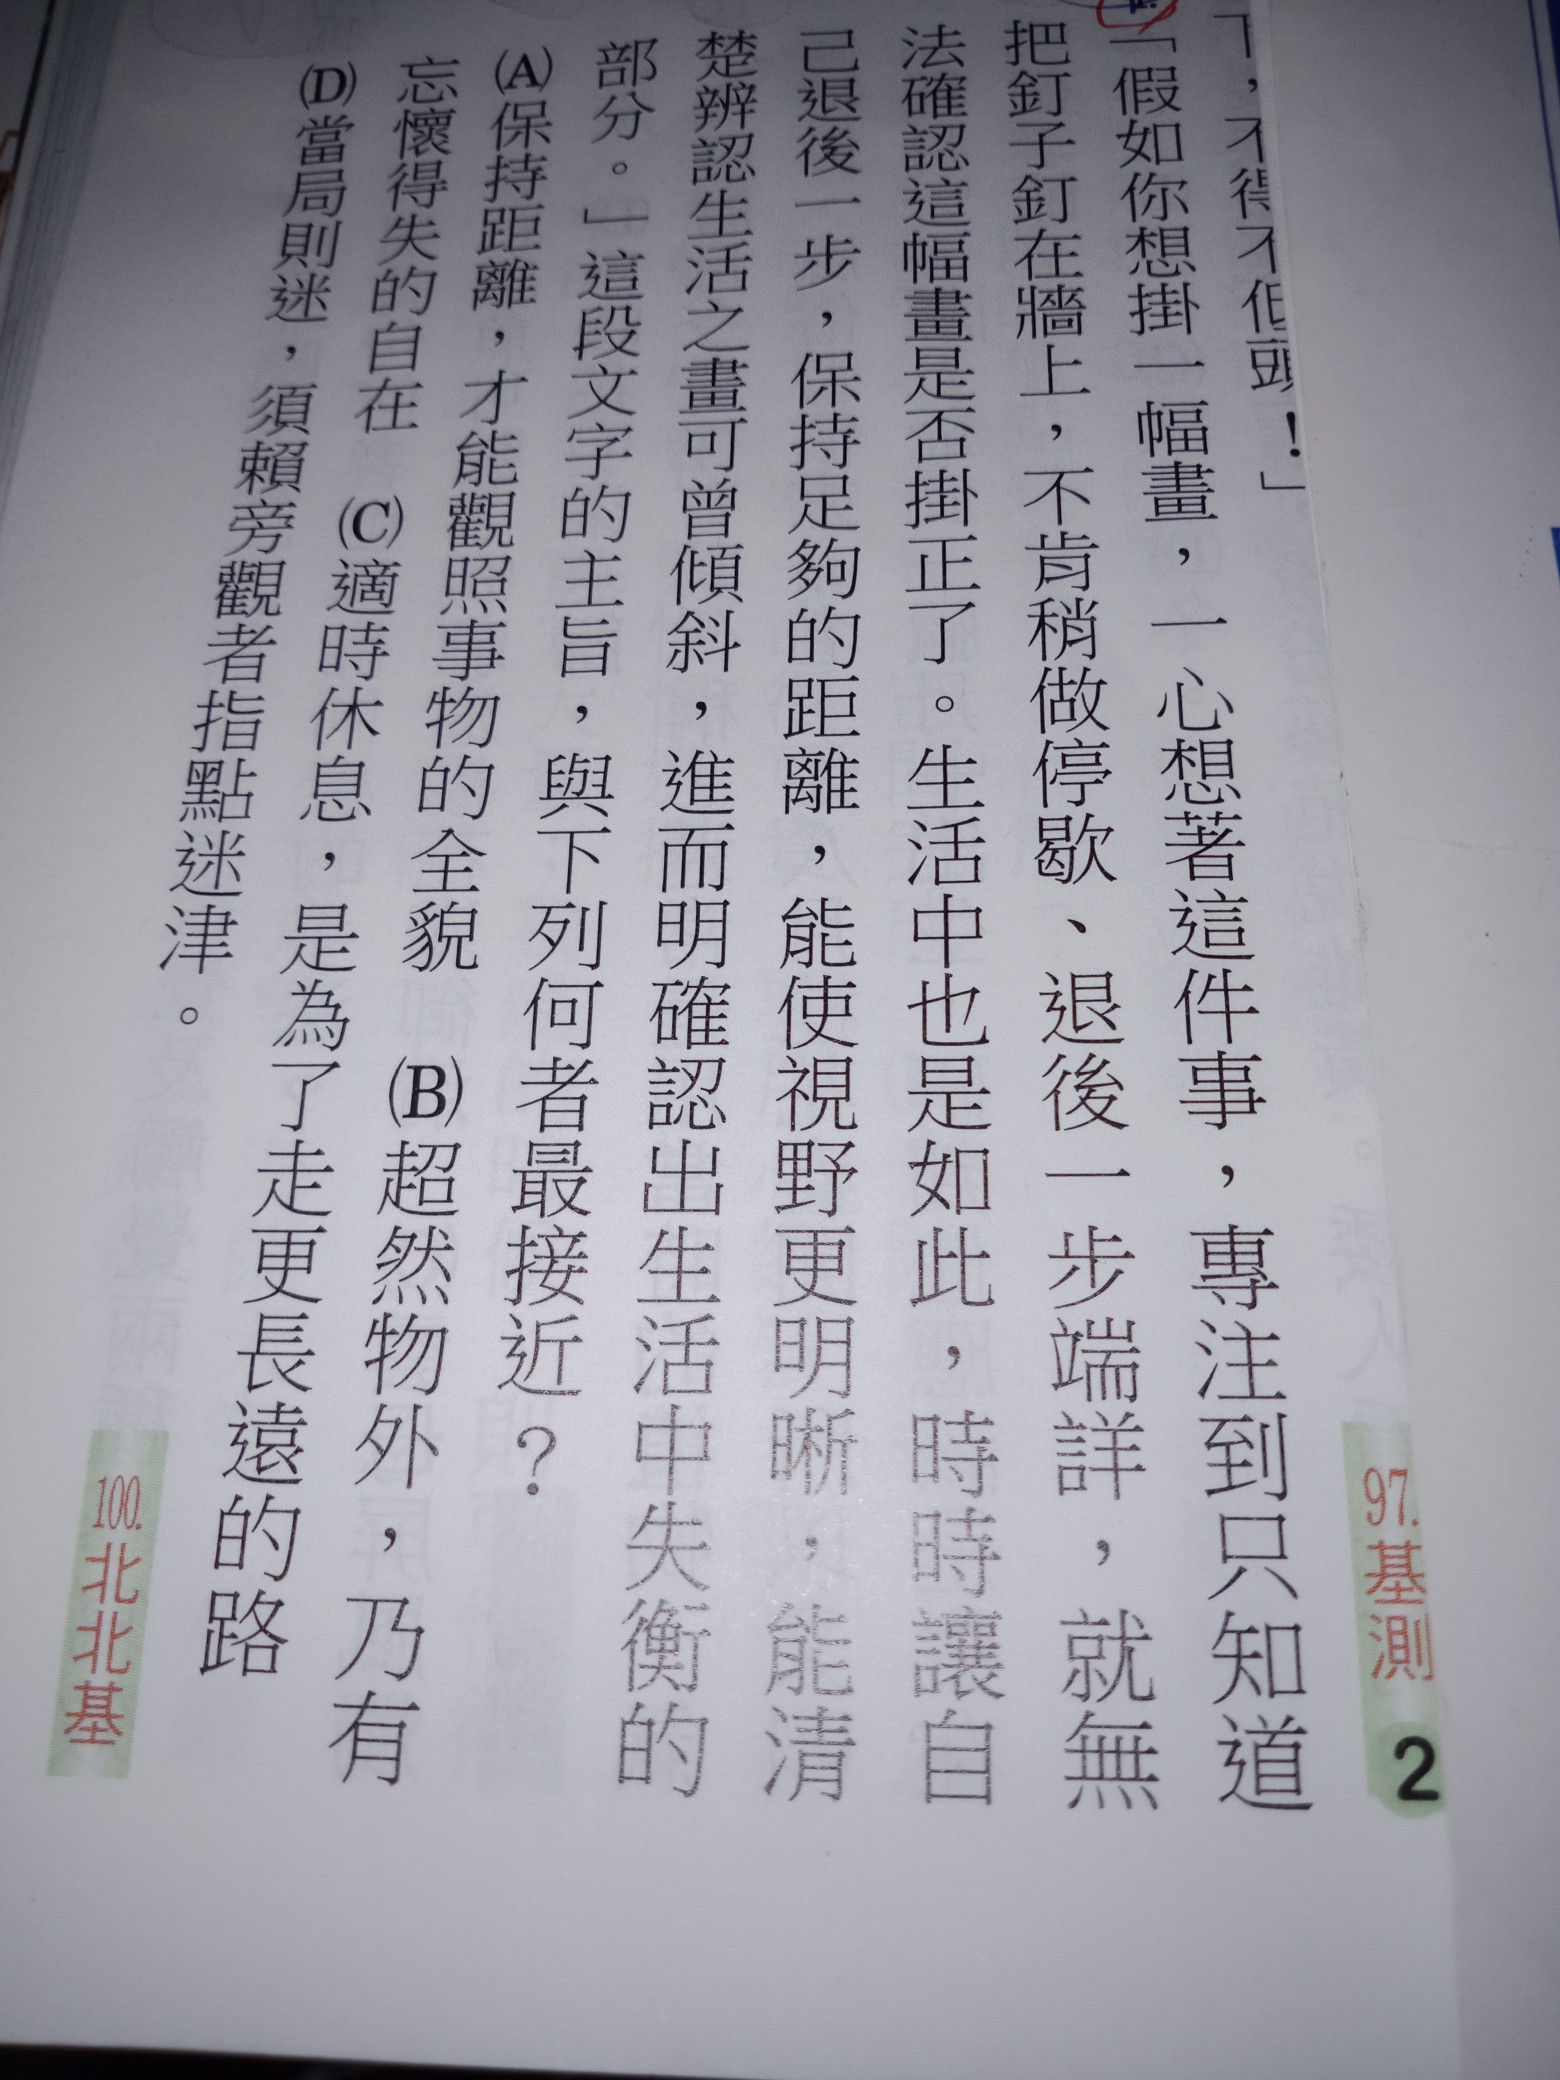 不但頭！」
97.基測
2
「假如你想掛一幅畫，一心想著這件事，專注到只知道
把釘子釘在牆上，不肯稍做停歇、退後一步端詳，就無
法確認這幅畫是否掛正了。生活中也是如此，時時讓自
己退後一步，保持足夠的距離，能使視野更明晰，能清
楚辨認生活之畫可曾傾斜，進而明確認出生活中失衡的
部分。」這段文字的主旨，與下列何者最接近？
(A)保持距離，才能觀照事物的全貌　(B)超然物外，乃有
忘懷得失的自在　(C)適時休息，是為了走更長遠的路
(D)當局則迷，須賴旁觀者指點迷津。
100.北北基